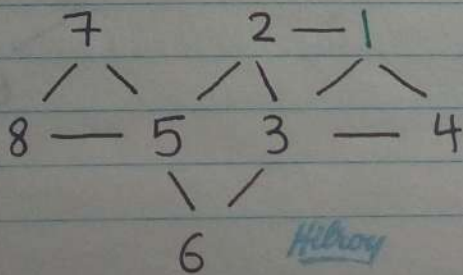 7 2 1
8 5 3 4
6 Hilroy